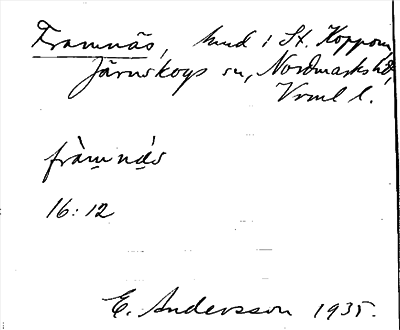 Framnäs, hmd i St. Koppom,
Järnskogs sn, Nordmarks hd,
Vrml l.
fràmnä́s
16:12
E. Andersson 1935.